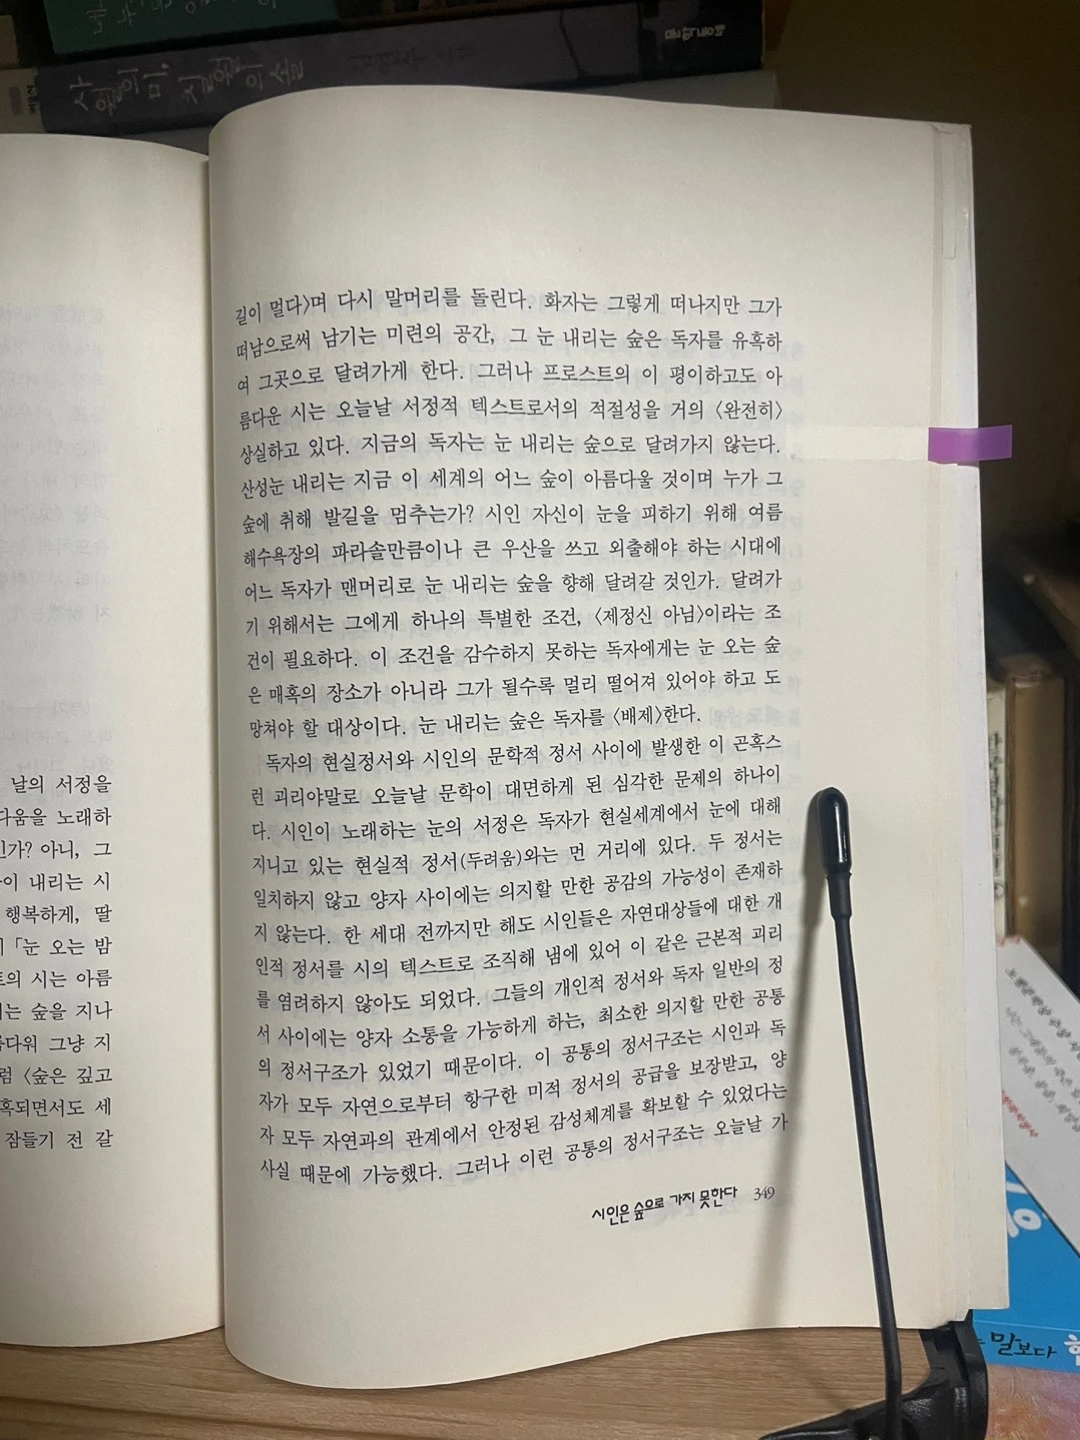 사월의 미, 칠월의 솔
날의 서정을
다움을 노래하
인가? 아니, 그
이 내리는 시
행복하게, 딸
「눈 오는 밤
트의 시는 아름
는 숲을 지나
름다워 그냥 지
럼 〈숲은 깊고
혹되면서도 세
잠들기 전 갈
길이 멀다〉며 다시 말머리를 돌린다. 화자는 그렇게 떠나지만 그가
떠남으로써 남기는 미련의 공간, 그 눈 내리는 숲은 독자를 유혹하
여 그곳으로 달려가게 한다. 그러나 프로스트의 이 평이하고도 아
름다운 시는 오늘날 서정적 텍스트로서의 적절성을 거의 〈완전히〉
상실하고 있다. 지금의 독자는 눈 내리는 숲으로 달려가지 않는다.
산성눈 내리는 지금 이 세계의 어느 숲이 아름다울 것이며 누가 그
숲에 취해 발길을 멈추는가? 시인 자신이 눈을 피하기 위해 여름
해수욕장의 파라솔만큼이나 큰 우산을 쓰고 외출해야 하는 시대에
어느 독자가 맨머리로 눈 내리는 숲을 향해 달려갈 것인가. 달려가
기 위해서는 그에게 하나의 특별한 조건, 〈제정신 아님〉이라는 조
건이 필요하다. 이 조건을 감수하지 못하는 독자에게는 눈 오는 숲
은 매혹의 장소가 아니라 그가 될수록 멀리 떨어져 있어야 하고 도
망쳐야 할 대상이다. 눈 내리는 숲은 독자를 〈배제〉한다.
독자의 현실정서와 시인의 문학적 정서 사이에 발생한 이 곤혹스
런 괴리야말로 오늘날 문학이 대면하게 된 심각한 문제의 하나이
다. 시인이 노래하는 눈의 서정은 독자가 현실세계에서 눈에 대해
지니고 있는 현실적 정서(두려움)와는 먼 거리에 있다. 두 정서는
일치하지 않고 양자 사이에는 의지할 만한 공감의 가능성이 존재하
지 않는다. 한 세대 전까지만 해도 시인들은 자연대상들에 대한 개
인적 정서를 시의 텍스트로 조직해 냄에 있어 이 같은 근본적 괴리
를 염려하지 않아도 되었다. 그들의 개인적 정서와 독자 일반의 정
서 사이에는 양자 소통을 가능하게 하는, 최소한 의지할 만한 공통
의 정서구조가 있었기 때문이다. 이 공통의 정서구조는 시인과 독
자가 모두 자연으로부터 항구한 미적 정서의 공급을 보장받고, 양
자 모두 자연과의 관계에서 안정된 감성체계를 확보할 수 있었다는
사실 때문에 가능했다. 그러나 이런 공통의 정서구조는 오늘날 가
시인은 숲으로 가지 못한다 349
말보다